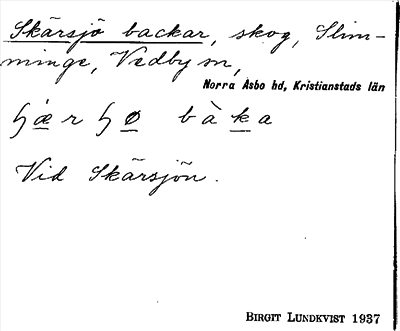 Skärsjö backar, skog, Slim-
minge, Vedby sn,
Norra Åsbo hd, Kristianstads län
bàka
Vid Skärsjön.
BIRGIT LUNDKVIST 1937